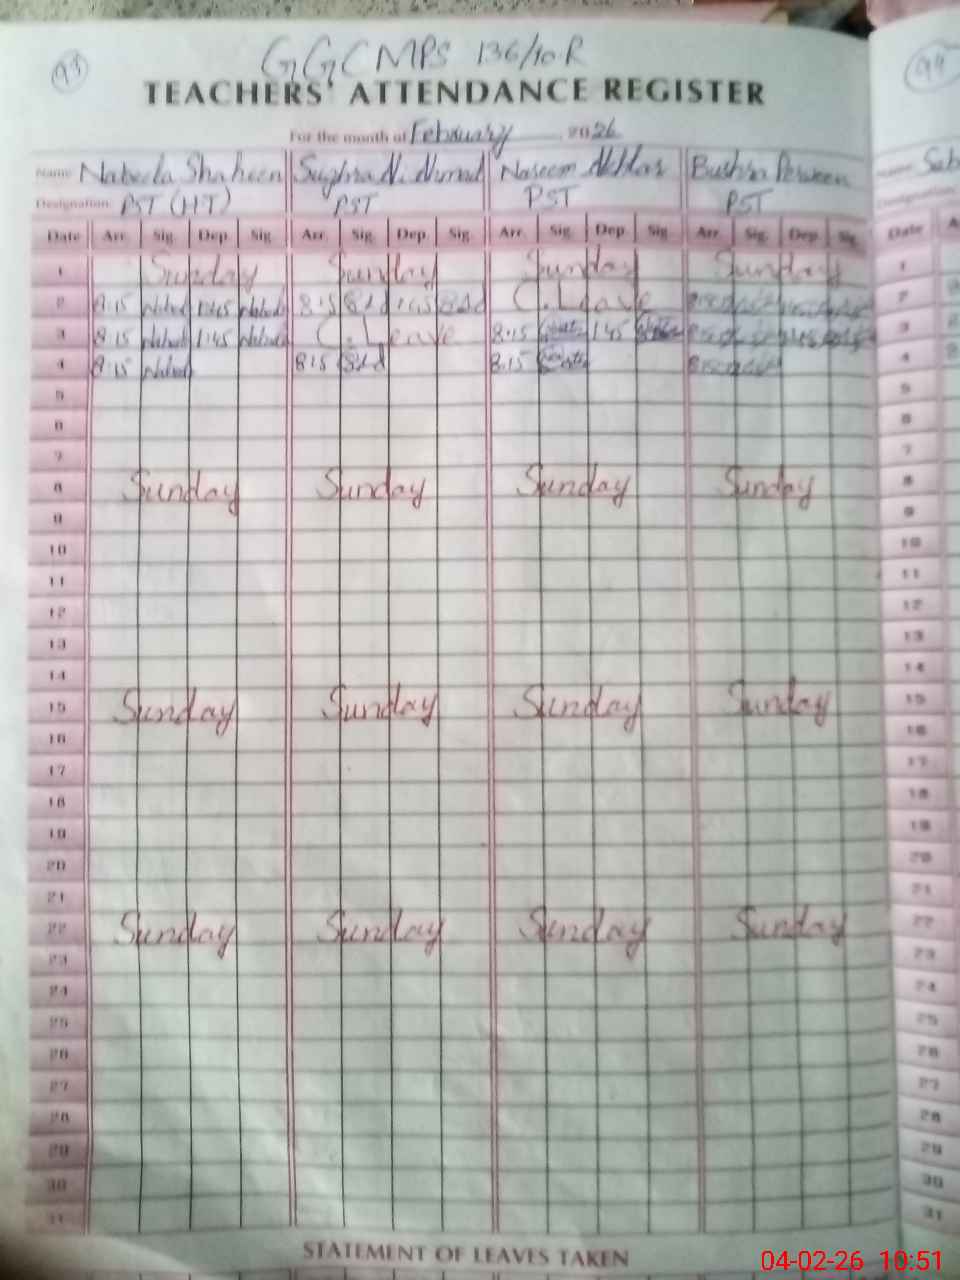 93
GGCMPS 136/10R
94
TEACHERS' ATTENDANCE REGISTER
For the month of February 2026
Name Nabeela Shaheen Sughra N. Ahmad Naseem Akhtar Bushra Perveen
Designation PST (HT) PST PST PST
Date Arr. Sig. Dep. Sig. Arr. Sig. Dep. Sig. Arr. Sig. Dep. Sig. Arr. Sig. Dep. Sig. Date
1 Sunday Sunday Sunday Sunday 1
2 8:15 1:45 8:15 1:45 C.Leave 2
3 8:15 1:45 C.Leave 8:15 1:45 3
4 8:15 8:15 8:15 4
5 5
6 6
7 7
8 Sunday Sunday Sunday Sunday 8
9 9
10 10
11 11
12 12
13 13
14 14
15 Sunday Sunday Sunday Sunday 15
16 16
17 17
18 18
19 19
20 20
21 21
22 Sunday Sunday Sunday Sunday 22
23 23
24 24
25 25
26 26
27 27
28 28
29 29
30 30
31 31
STATEMENT OF LEAVES TAKEN
04-02-26 10:51